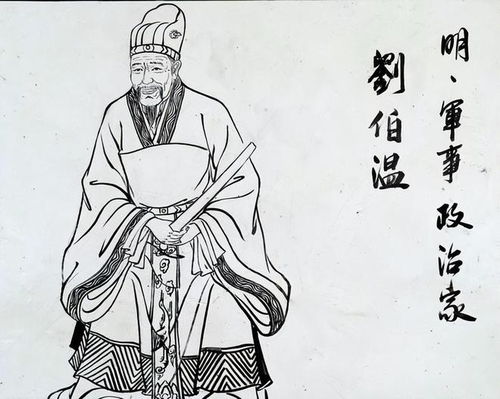 明、軍事政治家
劉伯溫